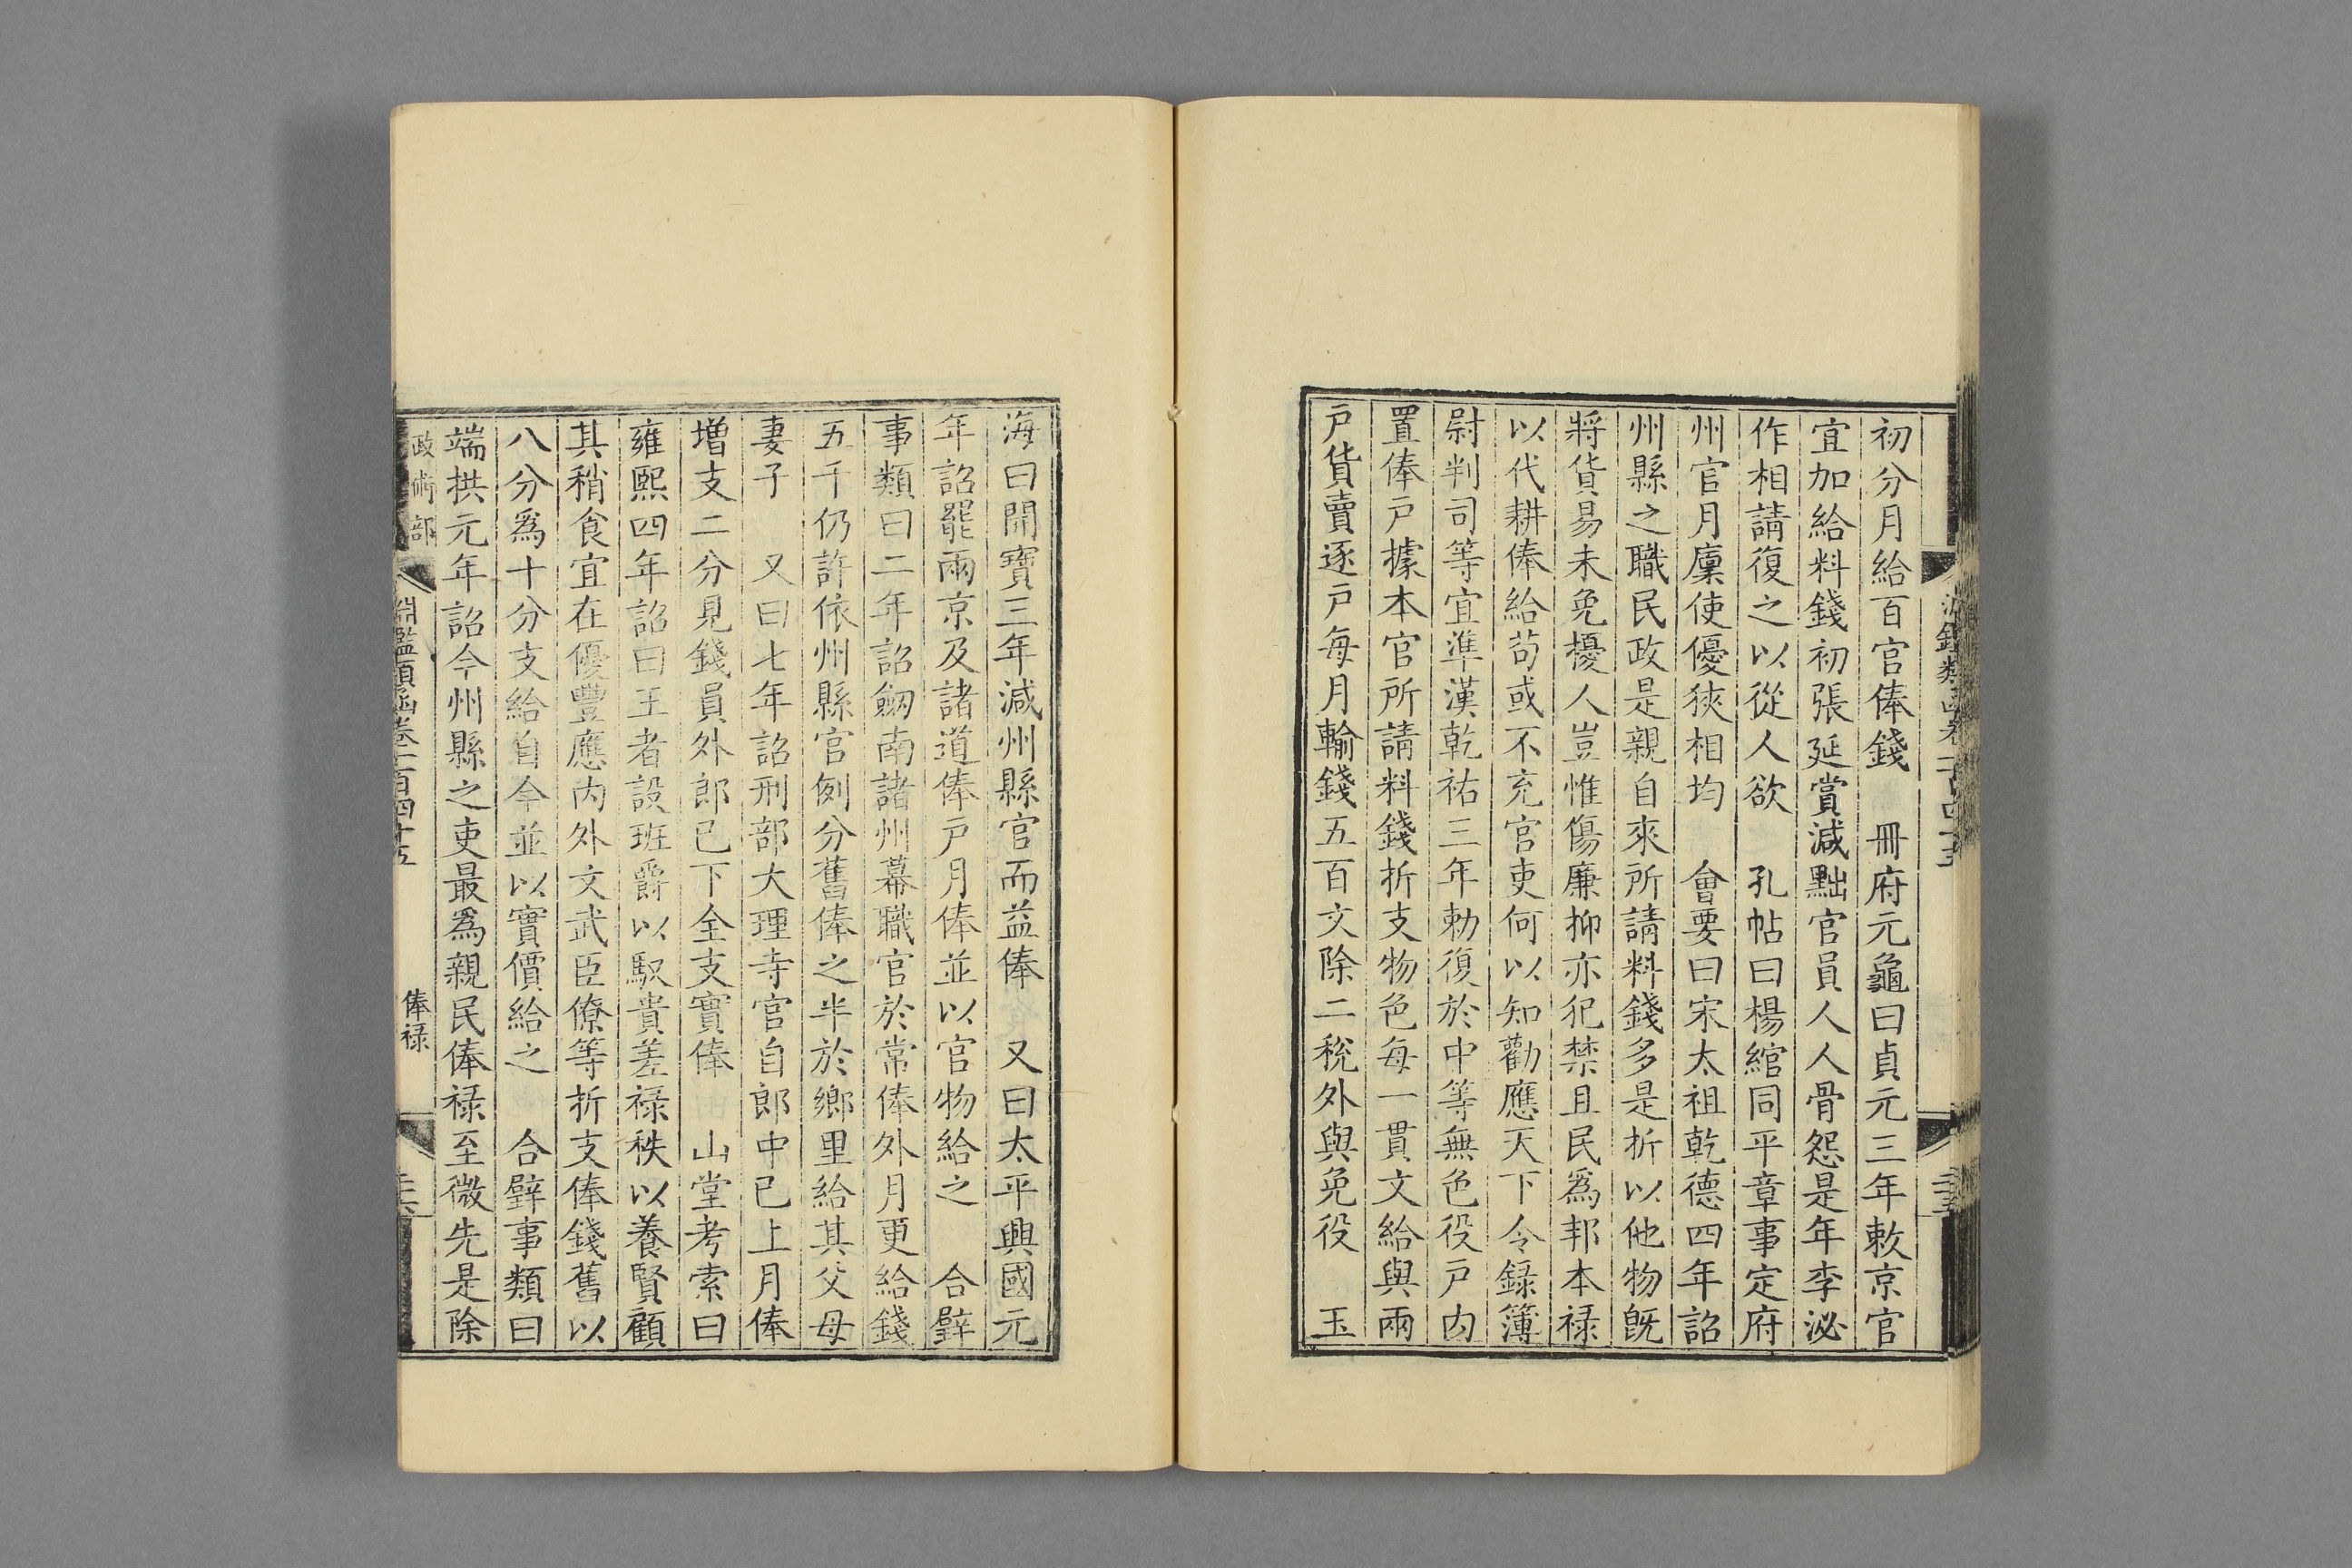 初分月給百官俸錢　冊府元龜曰貞元三年敕京官
宜加給料錢初張延賞減黜官員人人骨怨是年李泌
作相請復之以從人欲　孔帖曰楊綰同平章事定府
州官月廩使優狹相均　會要曰宋太祖乾德四年詔
州縣之職民政是親自來所請料錢多是折以他物旣
將貨易未免擾人豈惟傷廉抑亦犯禁且民爲邦本禄
以代耕俸給苟或不充官吏何以知勸應天下令録簿
尉判司等宜準漢乾祐三年勅復於中等無色役戸内
置俸戸據本官所請料錢折支物色每一貫文給與兩
戸貨賣逐戸每月輸錢五百文除二稅外與免役　玉
海曰開寶三年減州縣官而益俸　又曰太平興國元
年詔罷兩京及諸道俸戸月俸並以官物給之　合璧
事類曰二年詔劒南諸州幕職官於常俸外月更給錢
五千仍許依州縣官例分舊俸之半於鄉里給其父母
妻子　又曰七年詔刑部大理寺官自郎中已上月俸
增支二分見錢員外郎已下全支實俸　山堂考索曰
雍熙四年詔曰王者設班爵以馭貴差禄秩以養賢顧
其稍食宜在優豐應内外文武臣僚等折支俸錢舊以
八分爲十分支給自今並以實價給之　合璧事類曰
端拱元年詔今州縣之吏最爲親民俸禄至微先是除
政術部
淵鑑類函卷一百四十五
俸禄